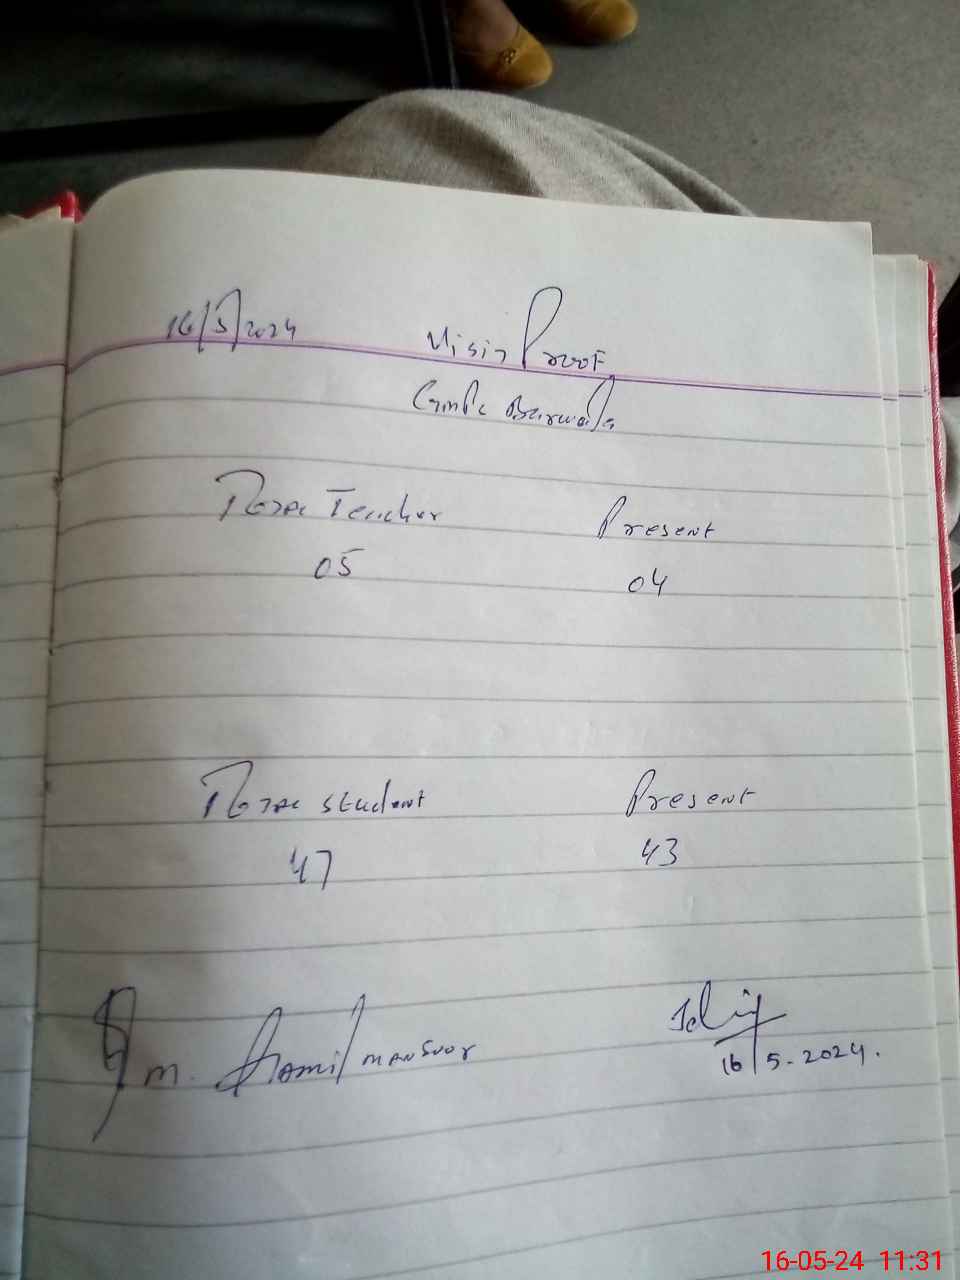 16/5/2024 Visit Proof
Barwala
Total Teacher Present
05 04
Total student Present
47 43
M. Jamil mansoor
16/5-2024.
16-05-24 11:31